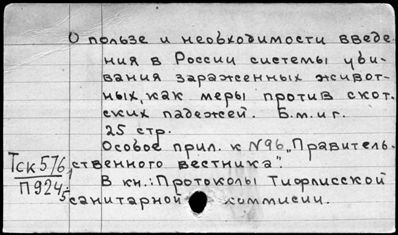 О пользе и необходимости введе-
ния в России системы уби-
вания зараженных живот-
ных, как меры против скот-
ских падежей. Б.м.и г.
25 стр.
Особое прил. к N96 „Правитель-
ственного вестника".
В кн.: Протоколы Тифлисской
санитарной коммисии.
Тск576
П924
5